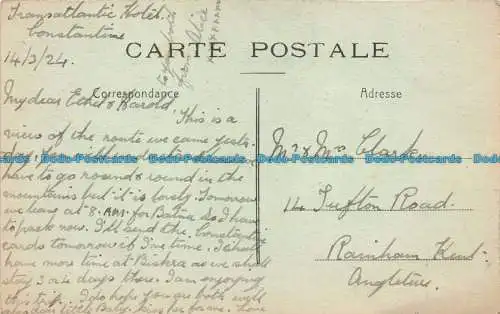 Transatlantic Hotel.
Constantine
14/3/24.
to you both
from Alice
xxxxxxx
CARTE POSTALE
Correspondance
Adresse
My dear Ethel & Harold,
This is a
view of the route we came yester-
day,
have to go round & round in the
mountains but it is lovely. Tomorrow
we leave at 8. AM. for Batna so I have
to pack now. I'll send the Constantine
cards tomorrow if I've time. I shall
have more time at Biskra as we shall
stay 3 or 4 days there. I am enjoying
this trip. I do hope you are both well
also dear little Baby, kiss her for me. Love
Mr & Mrs Clark
14 Tufton Road.
Rainham Kent.
Angleterre.
Dodo-Postcards Dodo-Postcards Dodo-Postcards